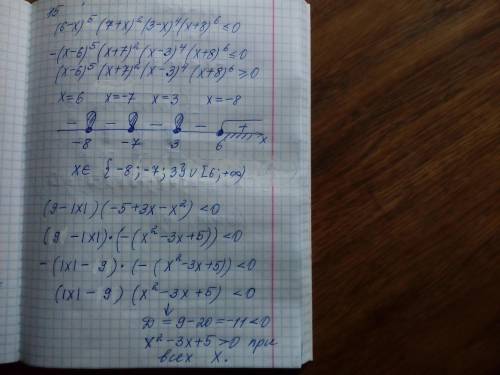 15
(6-x)⁵ (7+x)² (3-x)⁴ (x+8)⁶ ≤ 0
-(x-6)⁵ (x+7)² (x-3)⁴ (x+8)⁶ ≤ 0
(x-6)⁵ (x+7)² (x-3)⁴ (x+8)⁶ ≥ 0
x=6 x=-7 x=3 x=-8
- - - - +
-8 -7 3 6 x
x∈ {-8; -7; 3} ∪ [6; +∞)
(9-|x|)(-5+3x-x²) < 0
(9-|x|)·(-(x²-3x+5)) < 0
-(|x|-9)·(-(x²-3x+5)) < 0
(|x|-9)(x²-3x+5) < 0
↓
D = 9-20 = -11 < 0
x²-3x+5 > 0 при
всех x.